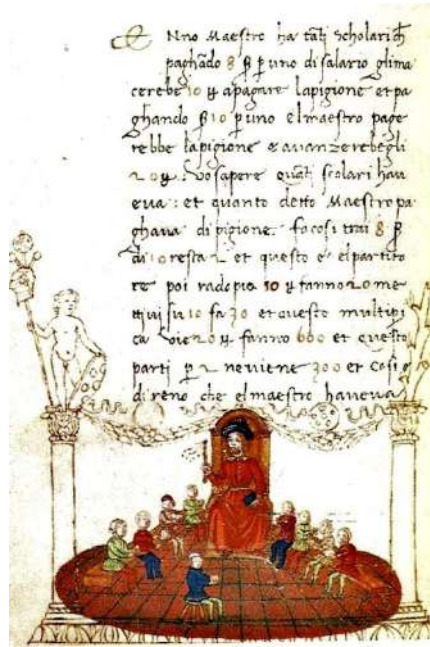 Nno Maestro ha tāti Scholari ch
paghādo 8 β p uno di salario glima
cerebe 10 ɥ apagare lapigione et pa
ghando β 10 p uno elmaestro page
rebbe lapigione e avanzerebegli
20 ɥ. Vo sapere quāti scolari hav
eva: et quanto detto Maestro pa
ghava di pigione. fa cosi trai 8 β
di 10 resta 2 et questo e elpartito
re poi radopia 10 ɥ fanno 20 me
ttivi su 10 fa 30 et questo multipi
ca vie 20 ɥ fanno 600 et questo
parti p 2 ne viene 300 et cosi
direno che elmaestro haveva